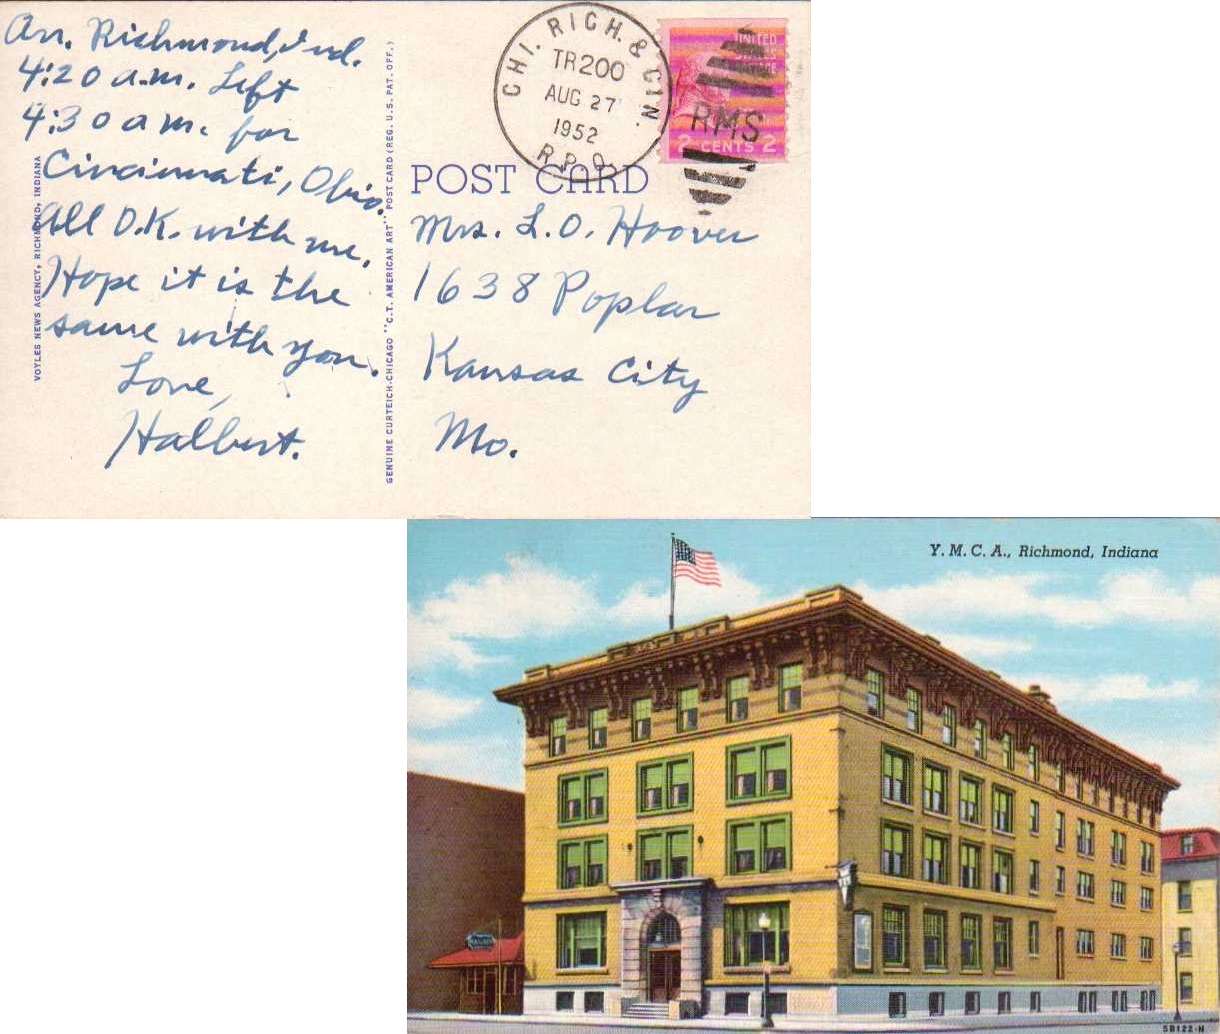 Arr. Richmond, Ind.
4:20 a.m. Left
4:30 a.m. for
Cincinnati, Ohio.
All O.K. with me.
Hope it is the
same with you.
Love,
Halbert.
VOYLES NEWS AGENCY, RICHMOND, INDIANA
GENUINE CURTEICH-CHICAGO "C.T. AMERICAN ART" POST CARD (REG. U.S. PAT. OFF.)
CHI. RICH. & CIN.
TR200
AUG 27
1952
R.P.O.
UNITED
STATES
POSTAGE
RMS
2 CENTS 2
POST CARD
Mrs. L.O. Hoover
1638 Poplar
Kansas City
Mo.
Y. M. C. A., Richmond, Indiana
5B122-N